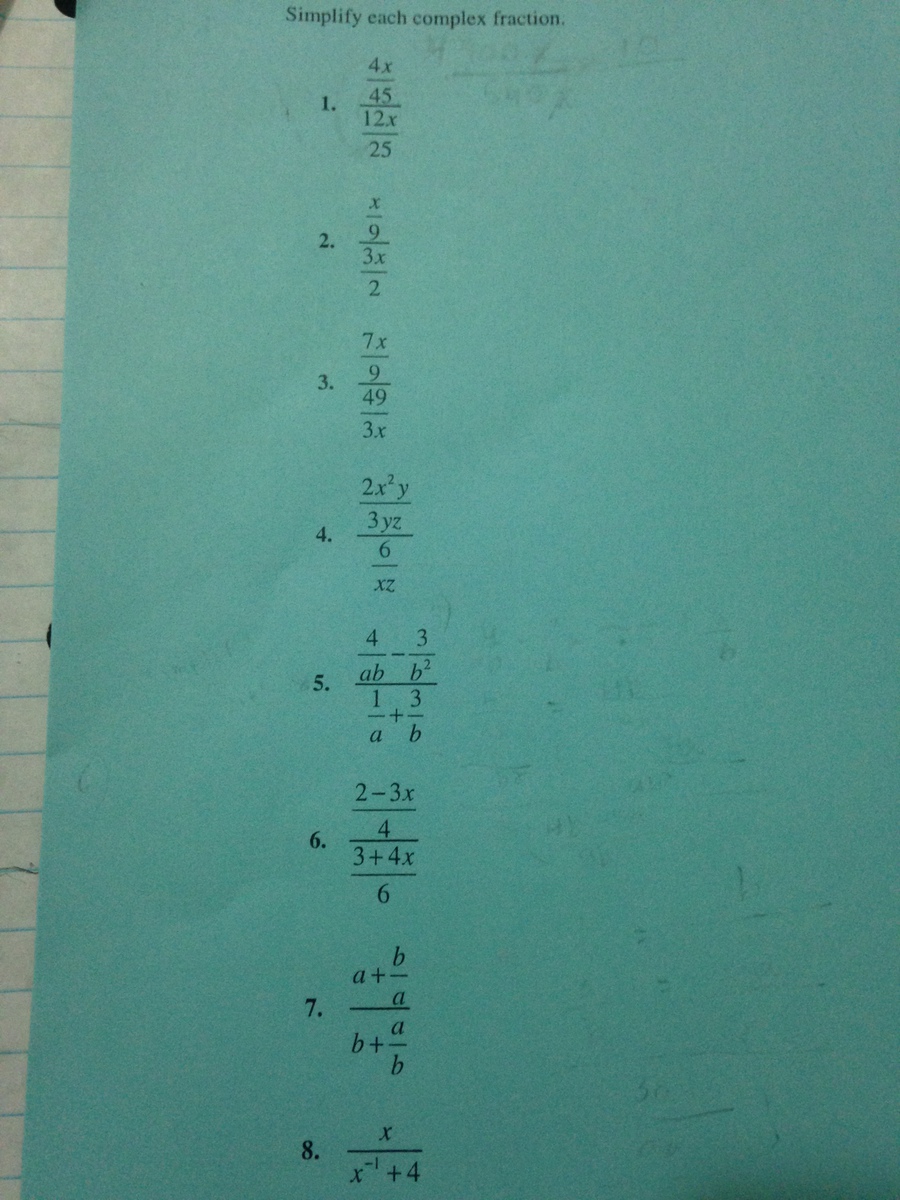 Simplify each complex fraction.
1. \frac{\frac{4x}{45}}{\frac{12x}{25}}
2. \frac{\frac{x}{9}}{\frac{3x}{2}}
3. \frac{\frac{7x}{9}}{\frac{49}{3x}}
4. \frac{\frac{2x^2y}{3yz}}{\frac{6}{xz}}
5. \frac{\frac{4}{ab}-\frac{3}{b^2}}{\frac{1}{a}+\frac{3}{b}}
6. \frac{\frac{2-3x}{4}}{\frac{3+4x}{6}}
7. \frac{a+\frac{b}{a}}{b+\frac{a}{b}}
8. \frac{x}{x^{-1}+4}